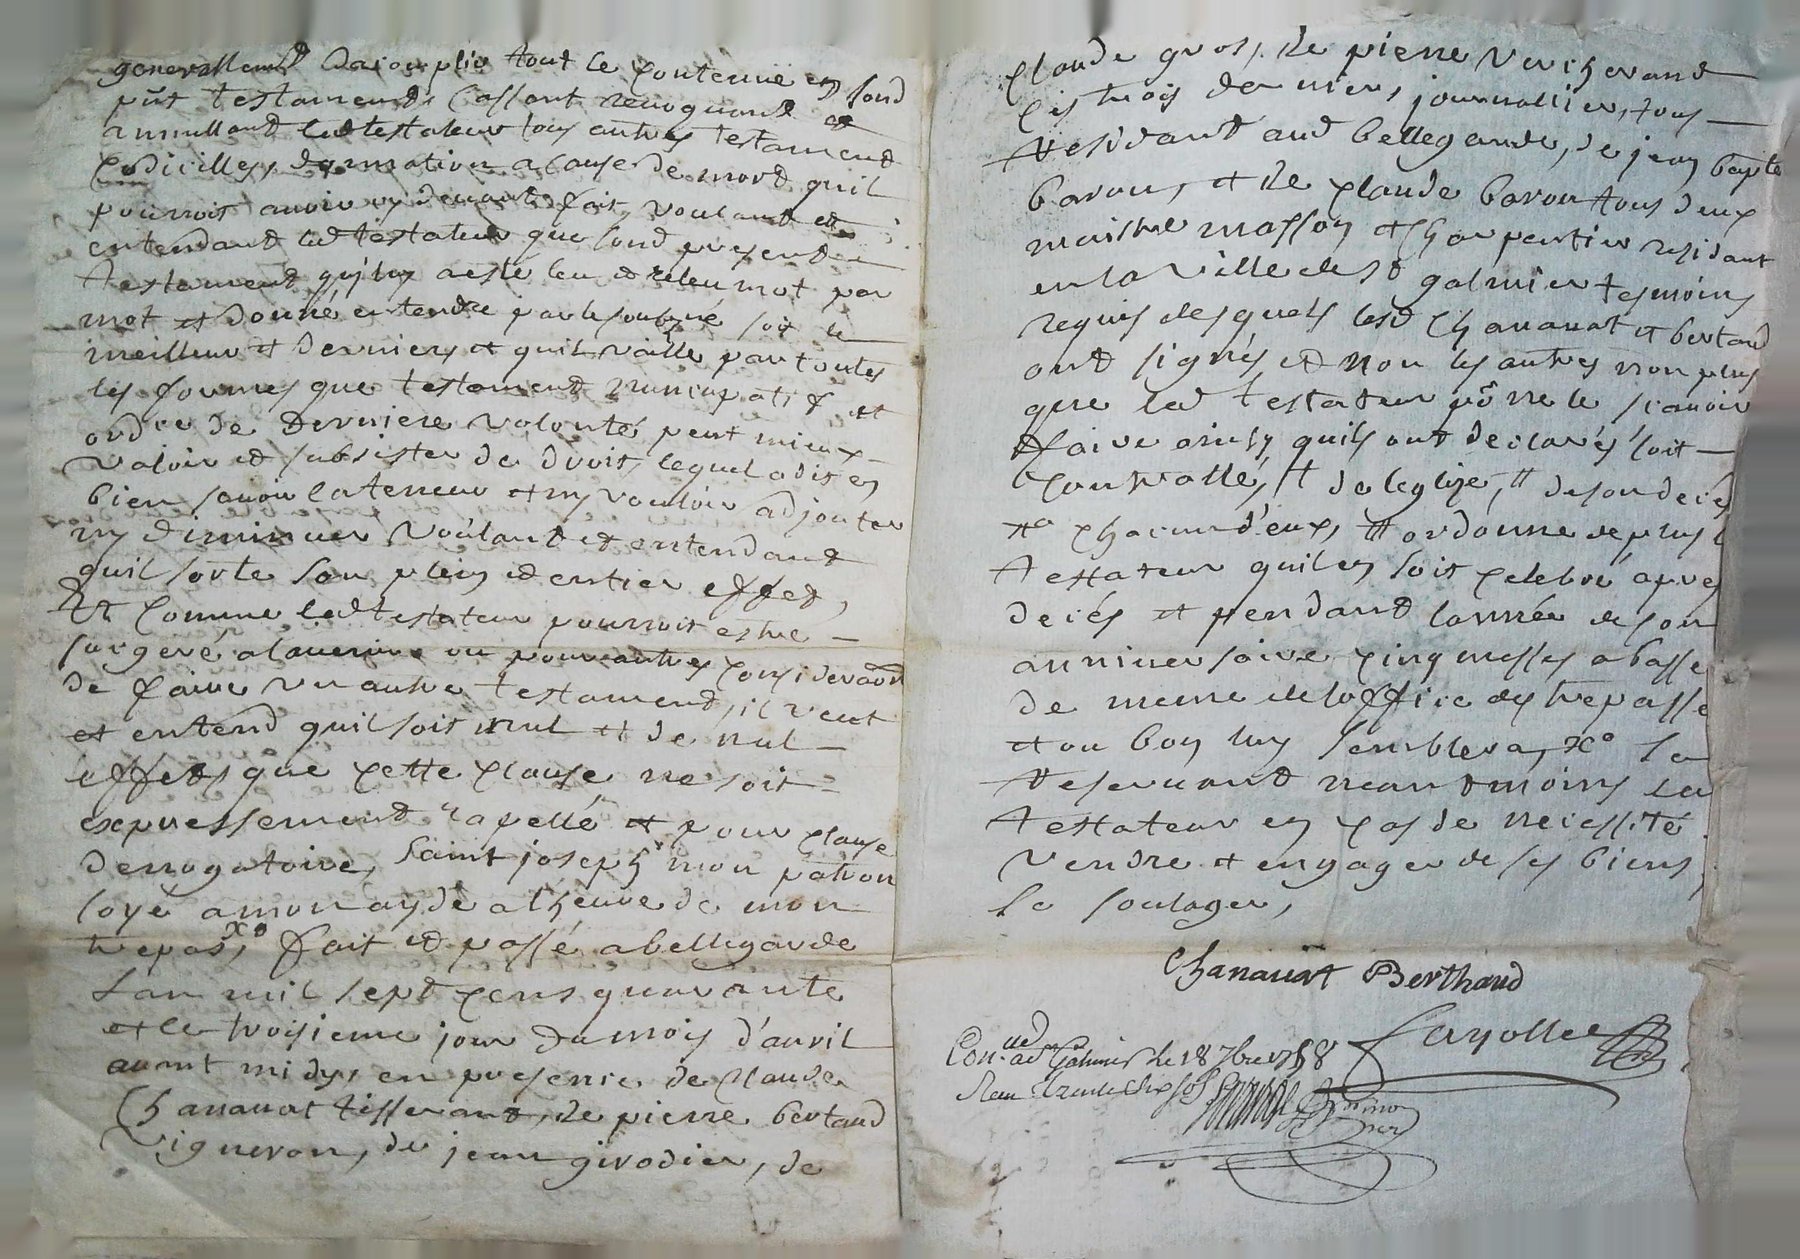 generallemt daccomplir tout le contenue en sond
pñt testament, Cassant revoquant et
annullant led testateur tous autres testament
Codicilles, donnation a cause de mort quil
pourroit auoir cy deuant fait, voulant et
entendant led testateur que sond present
testament qui luy a esté leu et releu mot par
mot et donné entendre par le soubsigné soit le
meilleur et derniers et quil vaille par toutes
les formes que testament nuncupatif et
ordre de derniere volonté peut mieux
valoir et subsister de droit, lequel a dit en
bien sauoir la teneur et ny vouloir adjouter
ny diminuer voulant et entendant
quil sorte son plein et entier effet,
Et comme led testateur pourroit estre
surgeré a lauenir ou pour autres considerations
de faire un autre testament, il veut
et entend quil soit nul et de nul
effets que cette clause ne soit
expressement rapellé et pour clause
derrogatoire, Saint joseph mon patron
soyé a mon ayde a lheure de mon
trepas, xo fait et passé a bellegarde
Lan mil sept cens quarante
et le troisieme jour du mois d'auril
auant midy, en presence de Claude
Chanauat tisserant, de pierre bertaud
Vigneron, de jean girodier, de
Claude gros, de pierre Vercherand
Ces trois derniers, journallier, tous
residant aud bellegarde, de jean bapte
barou, et de Claude barou tous deux
maistre masson et Charpentier residant
en la ville de st galmier tesmoins
requis desquels lesd Chanauat et bertaud
ont signés et non les autres non plus
que led testateur põr ne le scauoir
faire ainsy quils ont declarés soit
Controllé, # de leglize, # de son deces
xo chacun d'eux, # ordonne de plus l
testateur quil en soit celebré apres
deces et pendant lannée de son
anniuersaire cinq messes a basse
de meme de loffice des trepassé
et ou bon luy semblera, xo se
reseruant neantmoins led
testateur en cas de necessité
vendre et engager de ses biens
se soulager,
Chanauat Berthaud
Fayolle
Con. ad Galmier le 18 7bre 1758